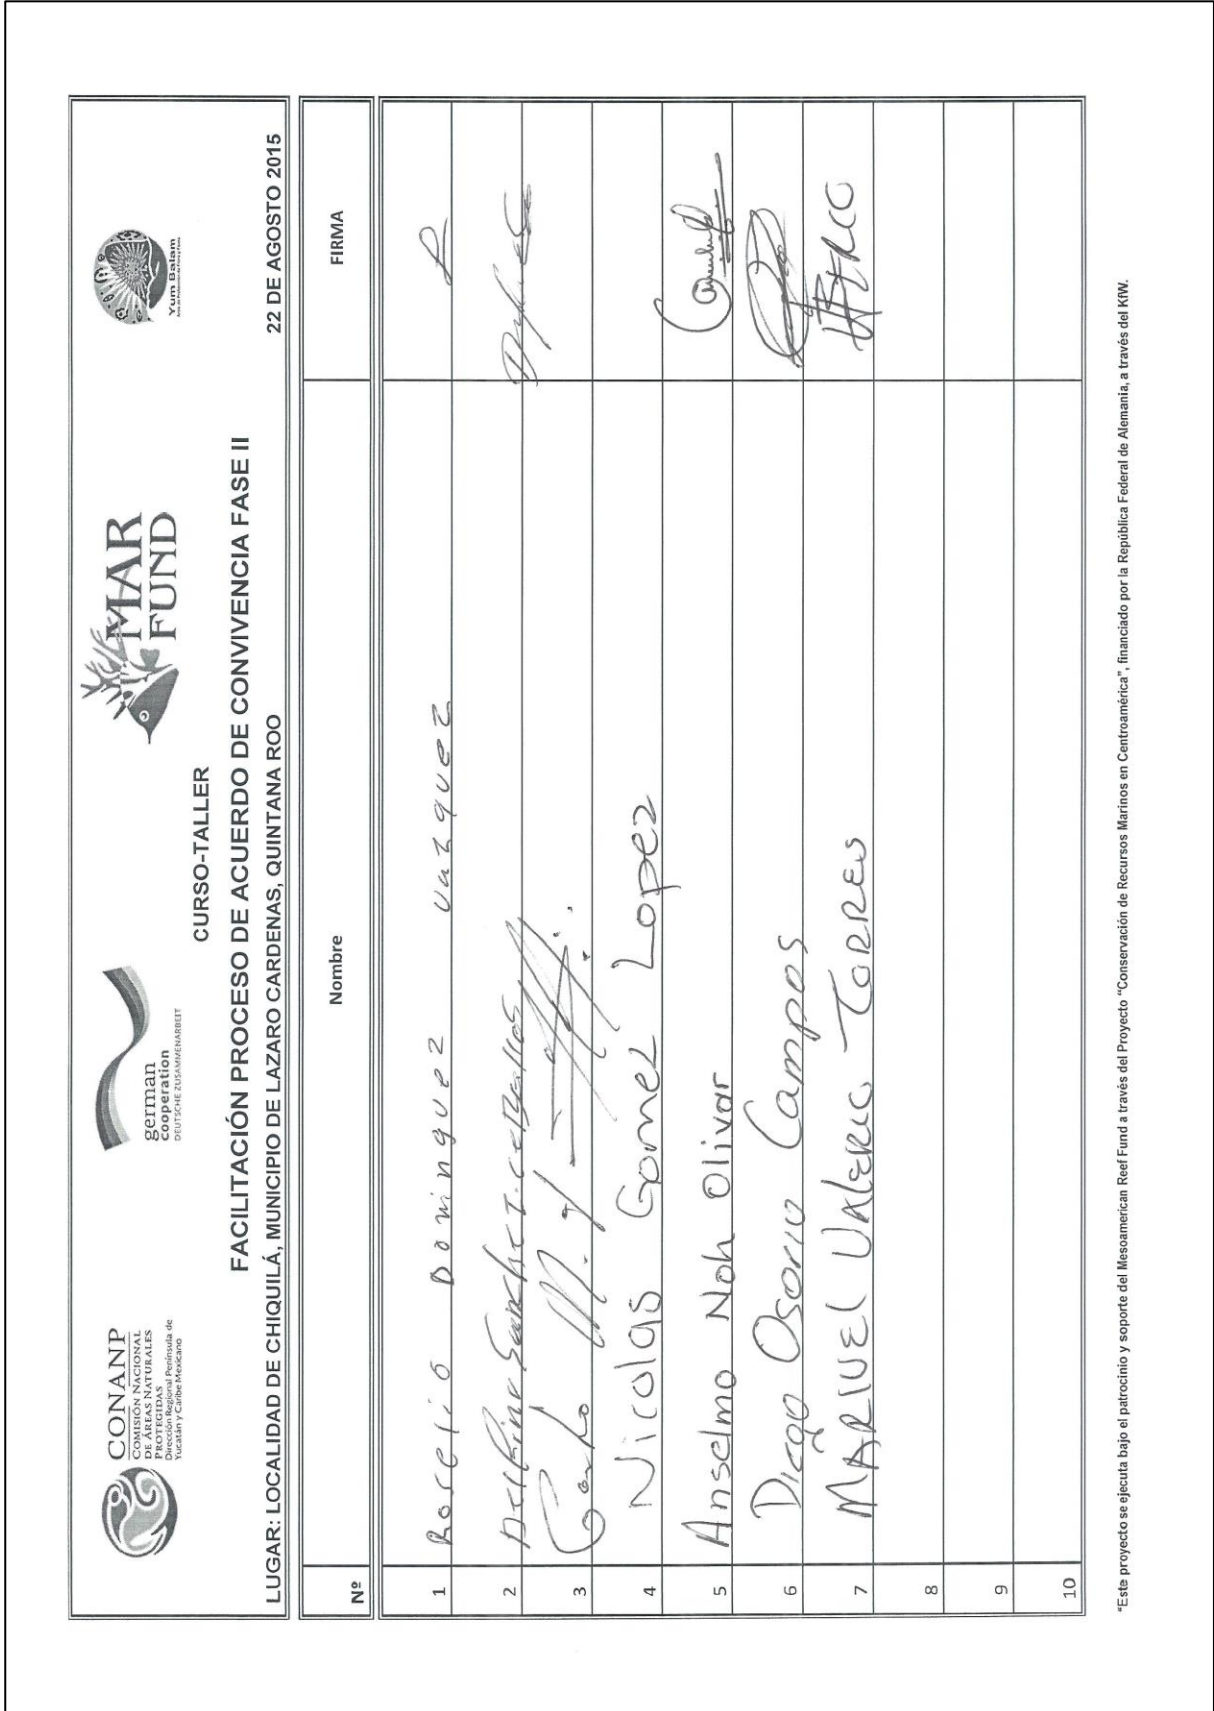 CONANP
COMISIÓN NACIONAL
DE ÁREAS NATURALES
PROTEGIDAS
Dirección Regional Península de
Yucatán y Caribe Mexicano
german
cooperation
DEUTSCHE ZUSAMMENARBEIT
MAR
FUND
Yum Balam
CURSO-TALLER
FACILITACIÓN PROCESO DE ACUERDO DE CONVIVENCIA FASE II
LUGAR: LOCALIDAD DE CHIQUILÁ, MUNICIPIO DE LAZARO CARDENAS, QUINTANA ROO 22 DE AGOSTO 2015
Nº Nombre FIRMA
1 Dominguez Vazquez
2 Sanchez
3
4 Nicolas Gomez Lopez
5 Anselmo Noh Olivar
6 Diego Osorio Campos
7 Torres
8
9
10
"Este proyecto se ejecuta bajo el patrocinio y soporte del Mesoamerican Reef Fund a través del Proyecto "Conservación de Recursos Marinos en Centroamérica", financiado por la República Federal de Alemania, a través del KfW.